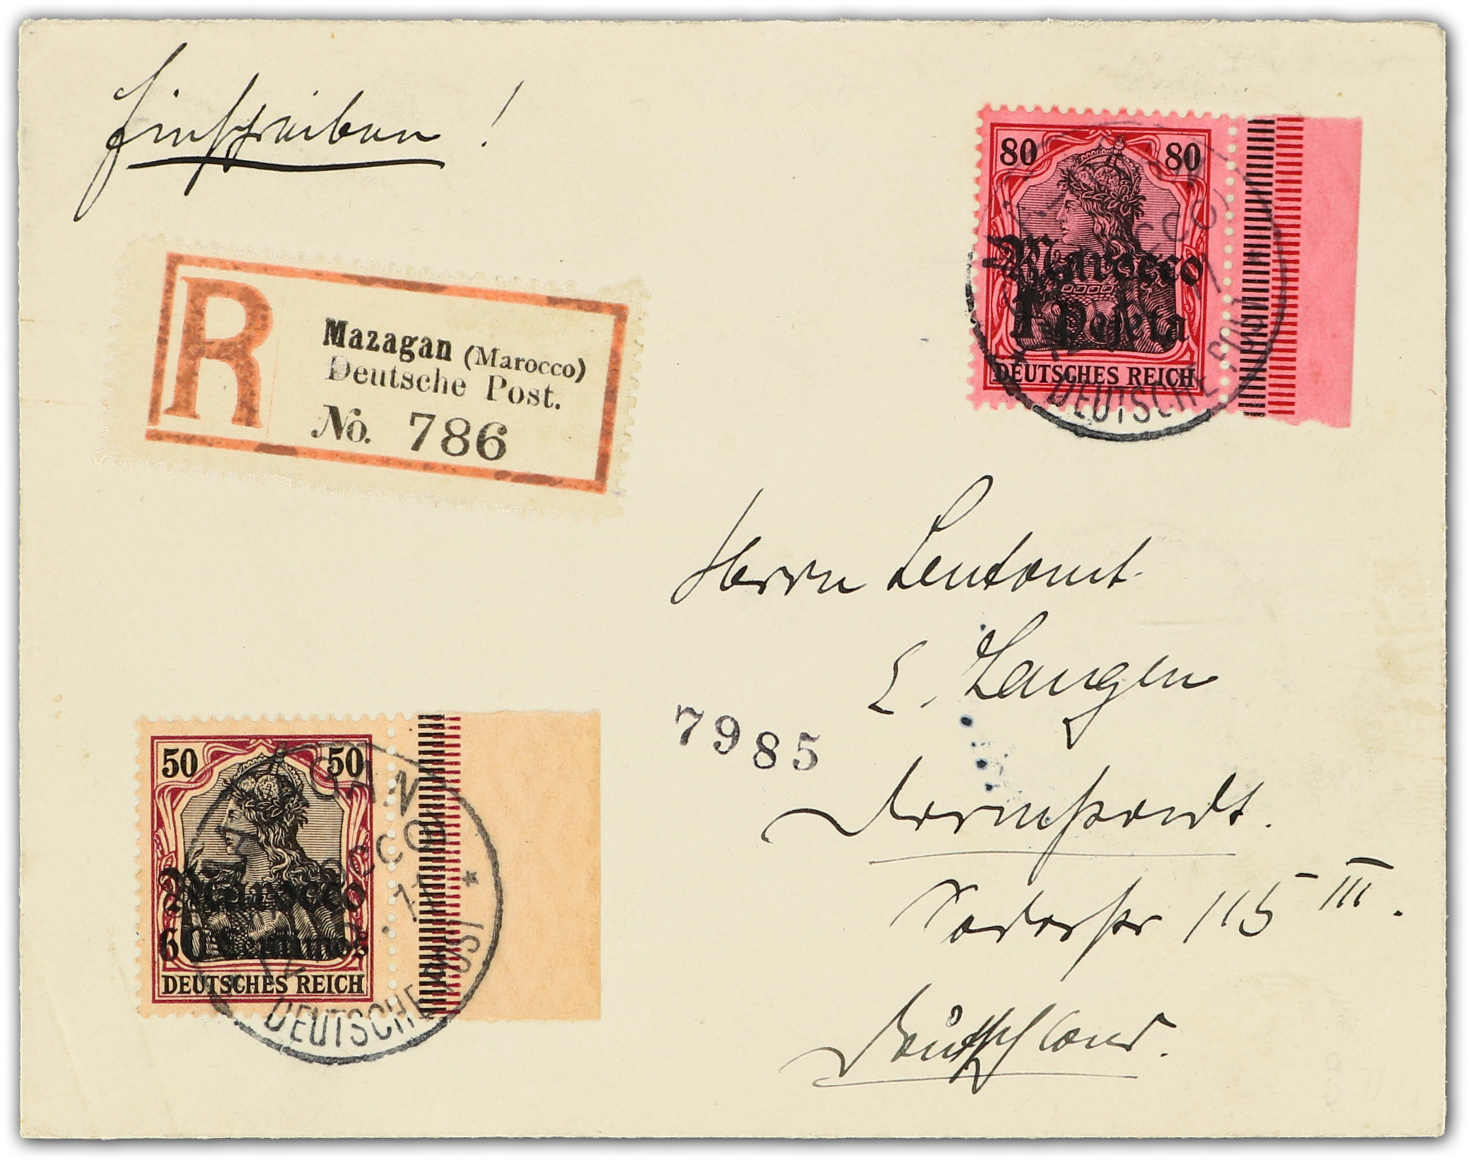 Einschreiben!
80 80
Marocco
1 Peseta
DEUTSCHES REICH
MAROCCO
DEUTSCHE POST
R
Mazagan (Marocco)
Deutsche Post.
No. 786
Herrn Leutnant
L. Langen
7985
Darmstadt.
115 III.
Deutschland.
50 50
Marocco
60 Centimos
DEUTSCHES REICH
MAZAGAN
MAROCCO
DEUTSCHE POST